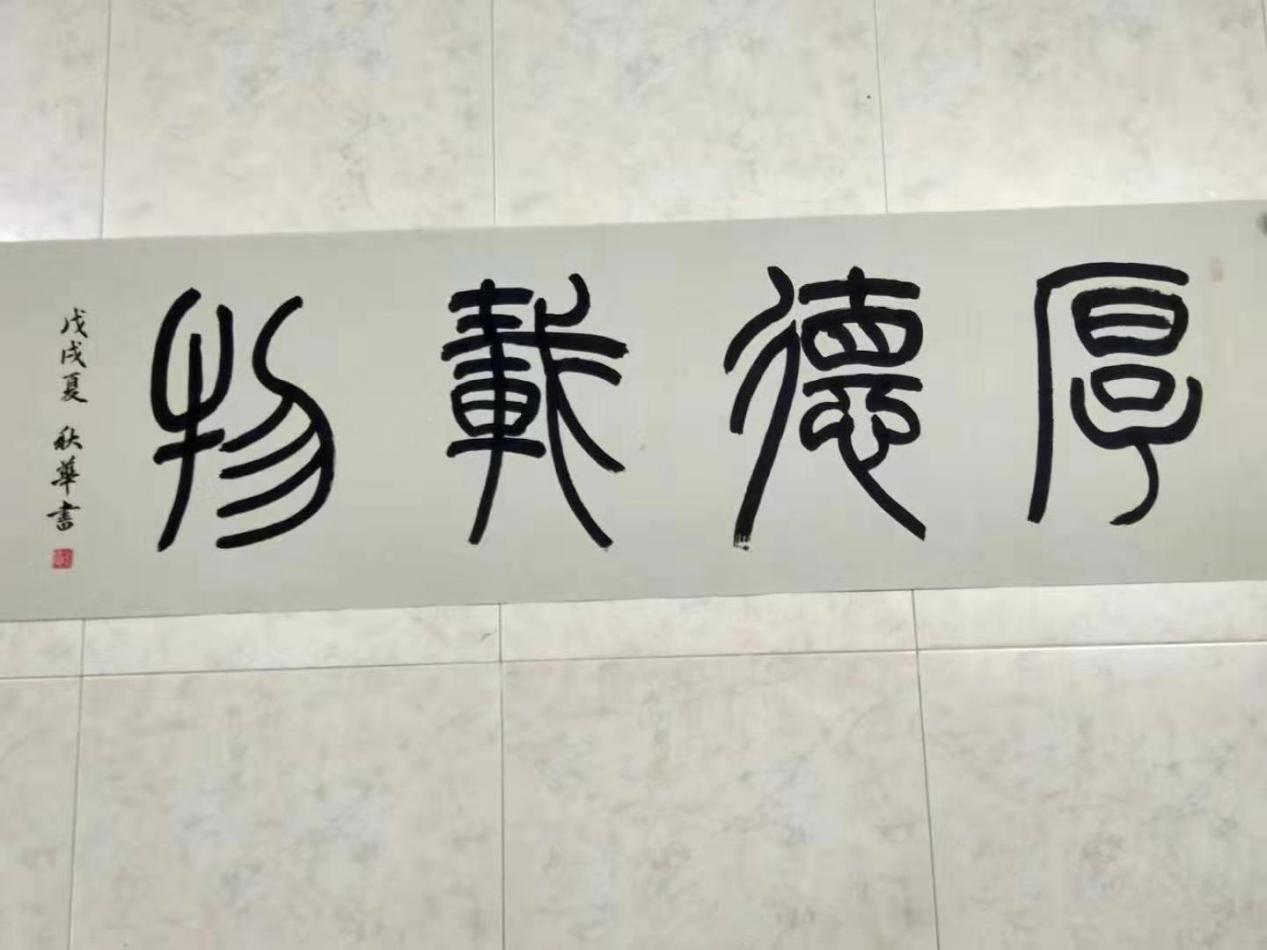 厚德載物
戊戌夏 秋華書